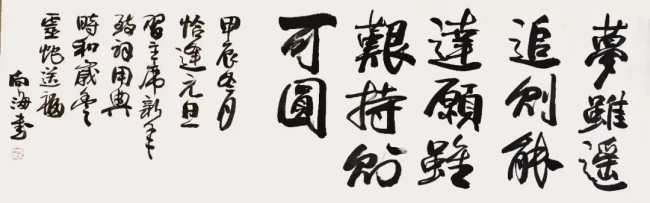 夢雖遥
追則能
達願雖
艱持則
可圓
甲辰冬月
恰逢元旦
習主席新年
致詞用典
時和歲豐
靈蛇送福
向海書